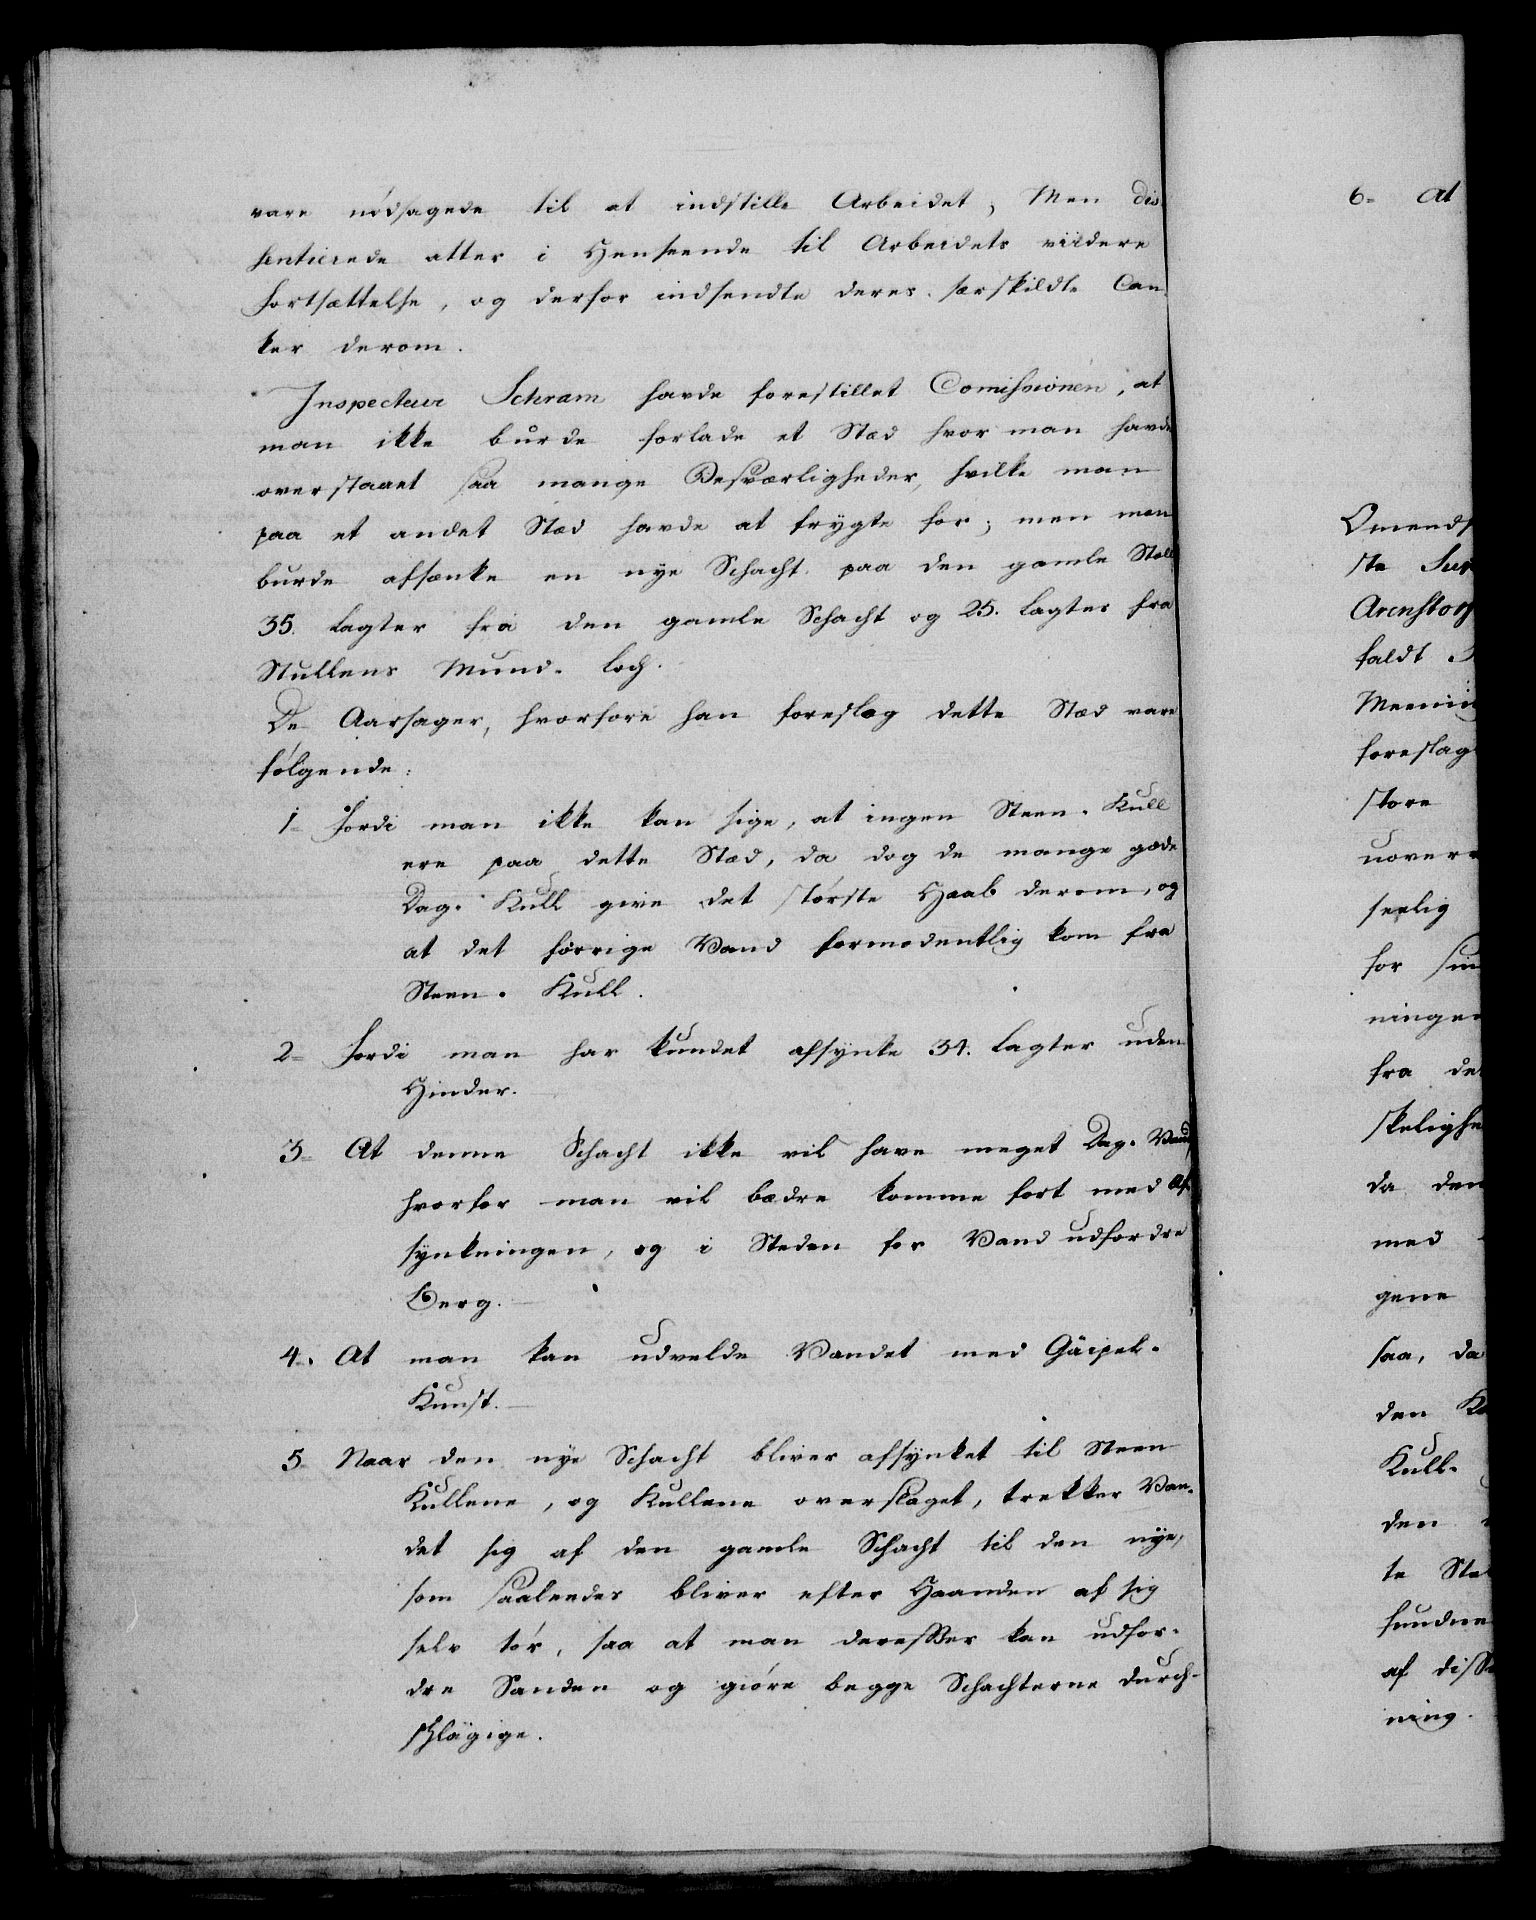 vare nødsagede til at indstille Arbeidet, Men dis-
sentierede atter i Henseende til Arbeidets viidere
Fortsættelse, og derfor indsendte deres særskildte Tan-
ker derom.
Inspecteur Schram havde forestillet Comissionen, at
man ikke burde forlade et Stæd hvor man havde
overstaaet saa mange Besværligheder, hvilke man
paa et andet Stæd havde at frygte for; men man
burde afsænke en nye Schacht paa den gamle Stoll
35. Lagter fra den gamle Schacht og 25. Lagter fra
Stullens Mund-loch.
De Aarsager, hvorfore han foreslog dette Stæd vare
følgende:
1- Fordi man ikke kan sige, at ingen Steen-Kull
ere paa dette Stæd, da dog de mange gode
Dag-Kull give det største Haab derom, og
at det forrige Vand formodentlig kom fra
Steen-Kull.
2- Fordi man har kundet afsynke 34. Lagter uden
Hinder.
3- At denne Schacht ikke vil have meget Dag-Vand,
hvorfor man vil bædre komme fort med Af-
synkningen, og i Steden for Vand udfordre
Berg.
4. At man kan udvelde Vandet med Gäipel-
Kunst.
5- Naar den nye Schacht bliver afsynket til Steen
Kullene, og Kullene overslaget, trekker Van-
det sig af den gamle Schacht til den nye,
som saaledes bliver efter Haanden af sig
selv tør, saa at man derefter kan udfor-
dre Sanden og giøre begge Schachterne durch-
schlägige.
6- At
Omends
ste
Arenstorf
faldt
Meening
foreslag
store
uover
seelig
for
ninge
fra de
skelighe
da den
med
gene
saa, da
den
Kull-
den
te Ste
fundne
af diss
ning.